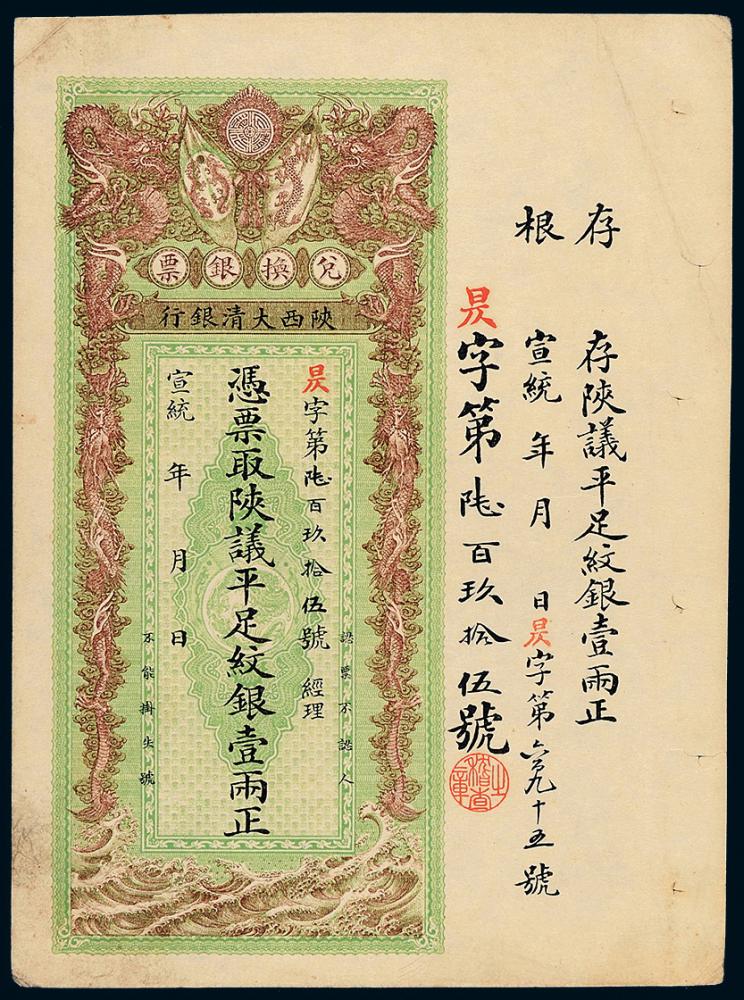 存根
存陝議平足紋銀壹兩正
宣統 年 月 日 昃字第六百九十五號
昃字第陸百玖拾伍號
稽查之章
兌換銀票
陝西大清銀行
認票不認人
昃字第陸百玖拾伍號 經理
憑票取陝議平足紋銀壹兩正
宣統 年 月 日
不能掛失號